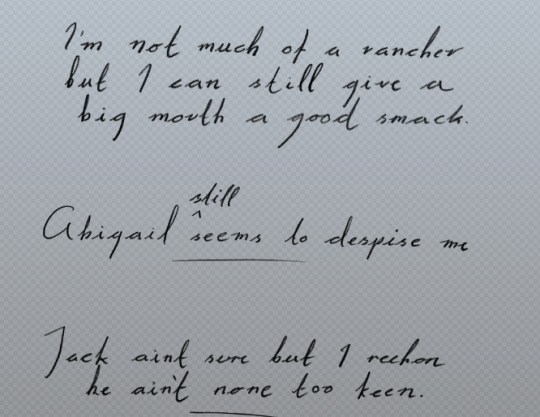 I'm not much of a rancher
but I can still give a
big mouth a good smack.
still
Abigail ^ seems to despise me
Jack aint sure but I reckon
he ain't none too keen.